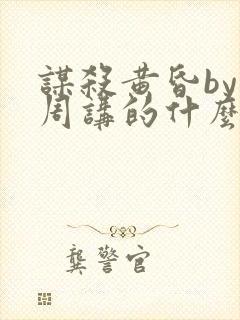 謀殺黃昏by
周講的什麼
龔警官